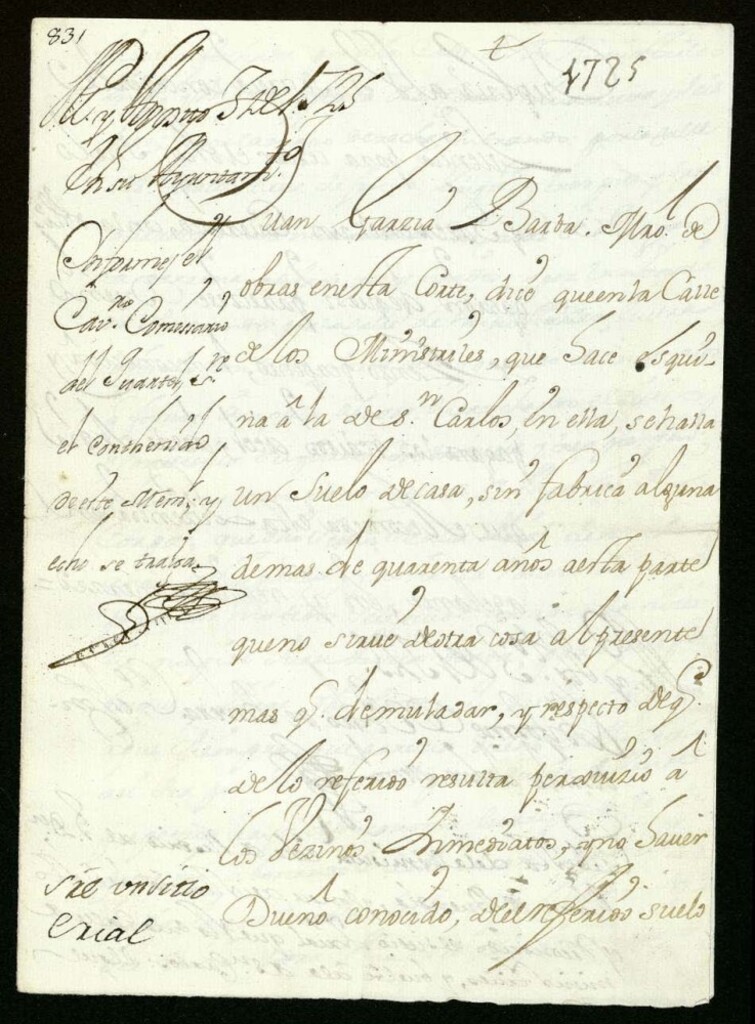 831
1725
M.d y Agosto 3 de 1725
En su Ayuntam.to
Informe el
Cav.ro Comissario
del Quartel, s.re
el conthenido
de este Mem.l y
echo se traiga
Juan Garzia Barba. Mro. de
obras en esta Corte, dice que en la Calle
de los Ministriles, que hace esqui-
na â la de S.n Carlos, en ella, se halla
un suelo de casa, sin fabrica alguna
demas de quarenta años a esta parte
que no sirue de otra cosa al presente
mas q. de muladar, y respecto de q.e
de lo referido resulta perjuizio â
los Vezinos Inmediatos, y no haver
Dueño conocido, del referido suelo
sre un sitio
Erial